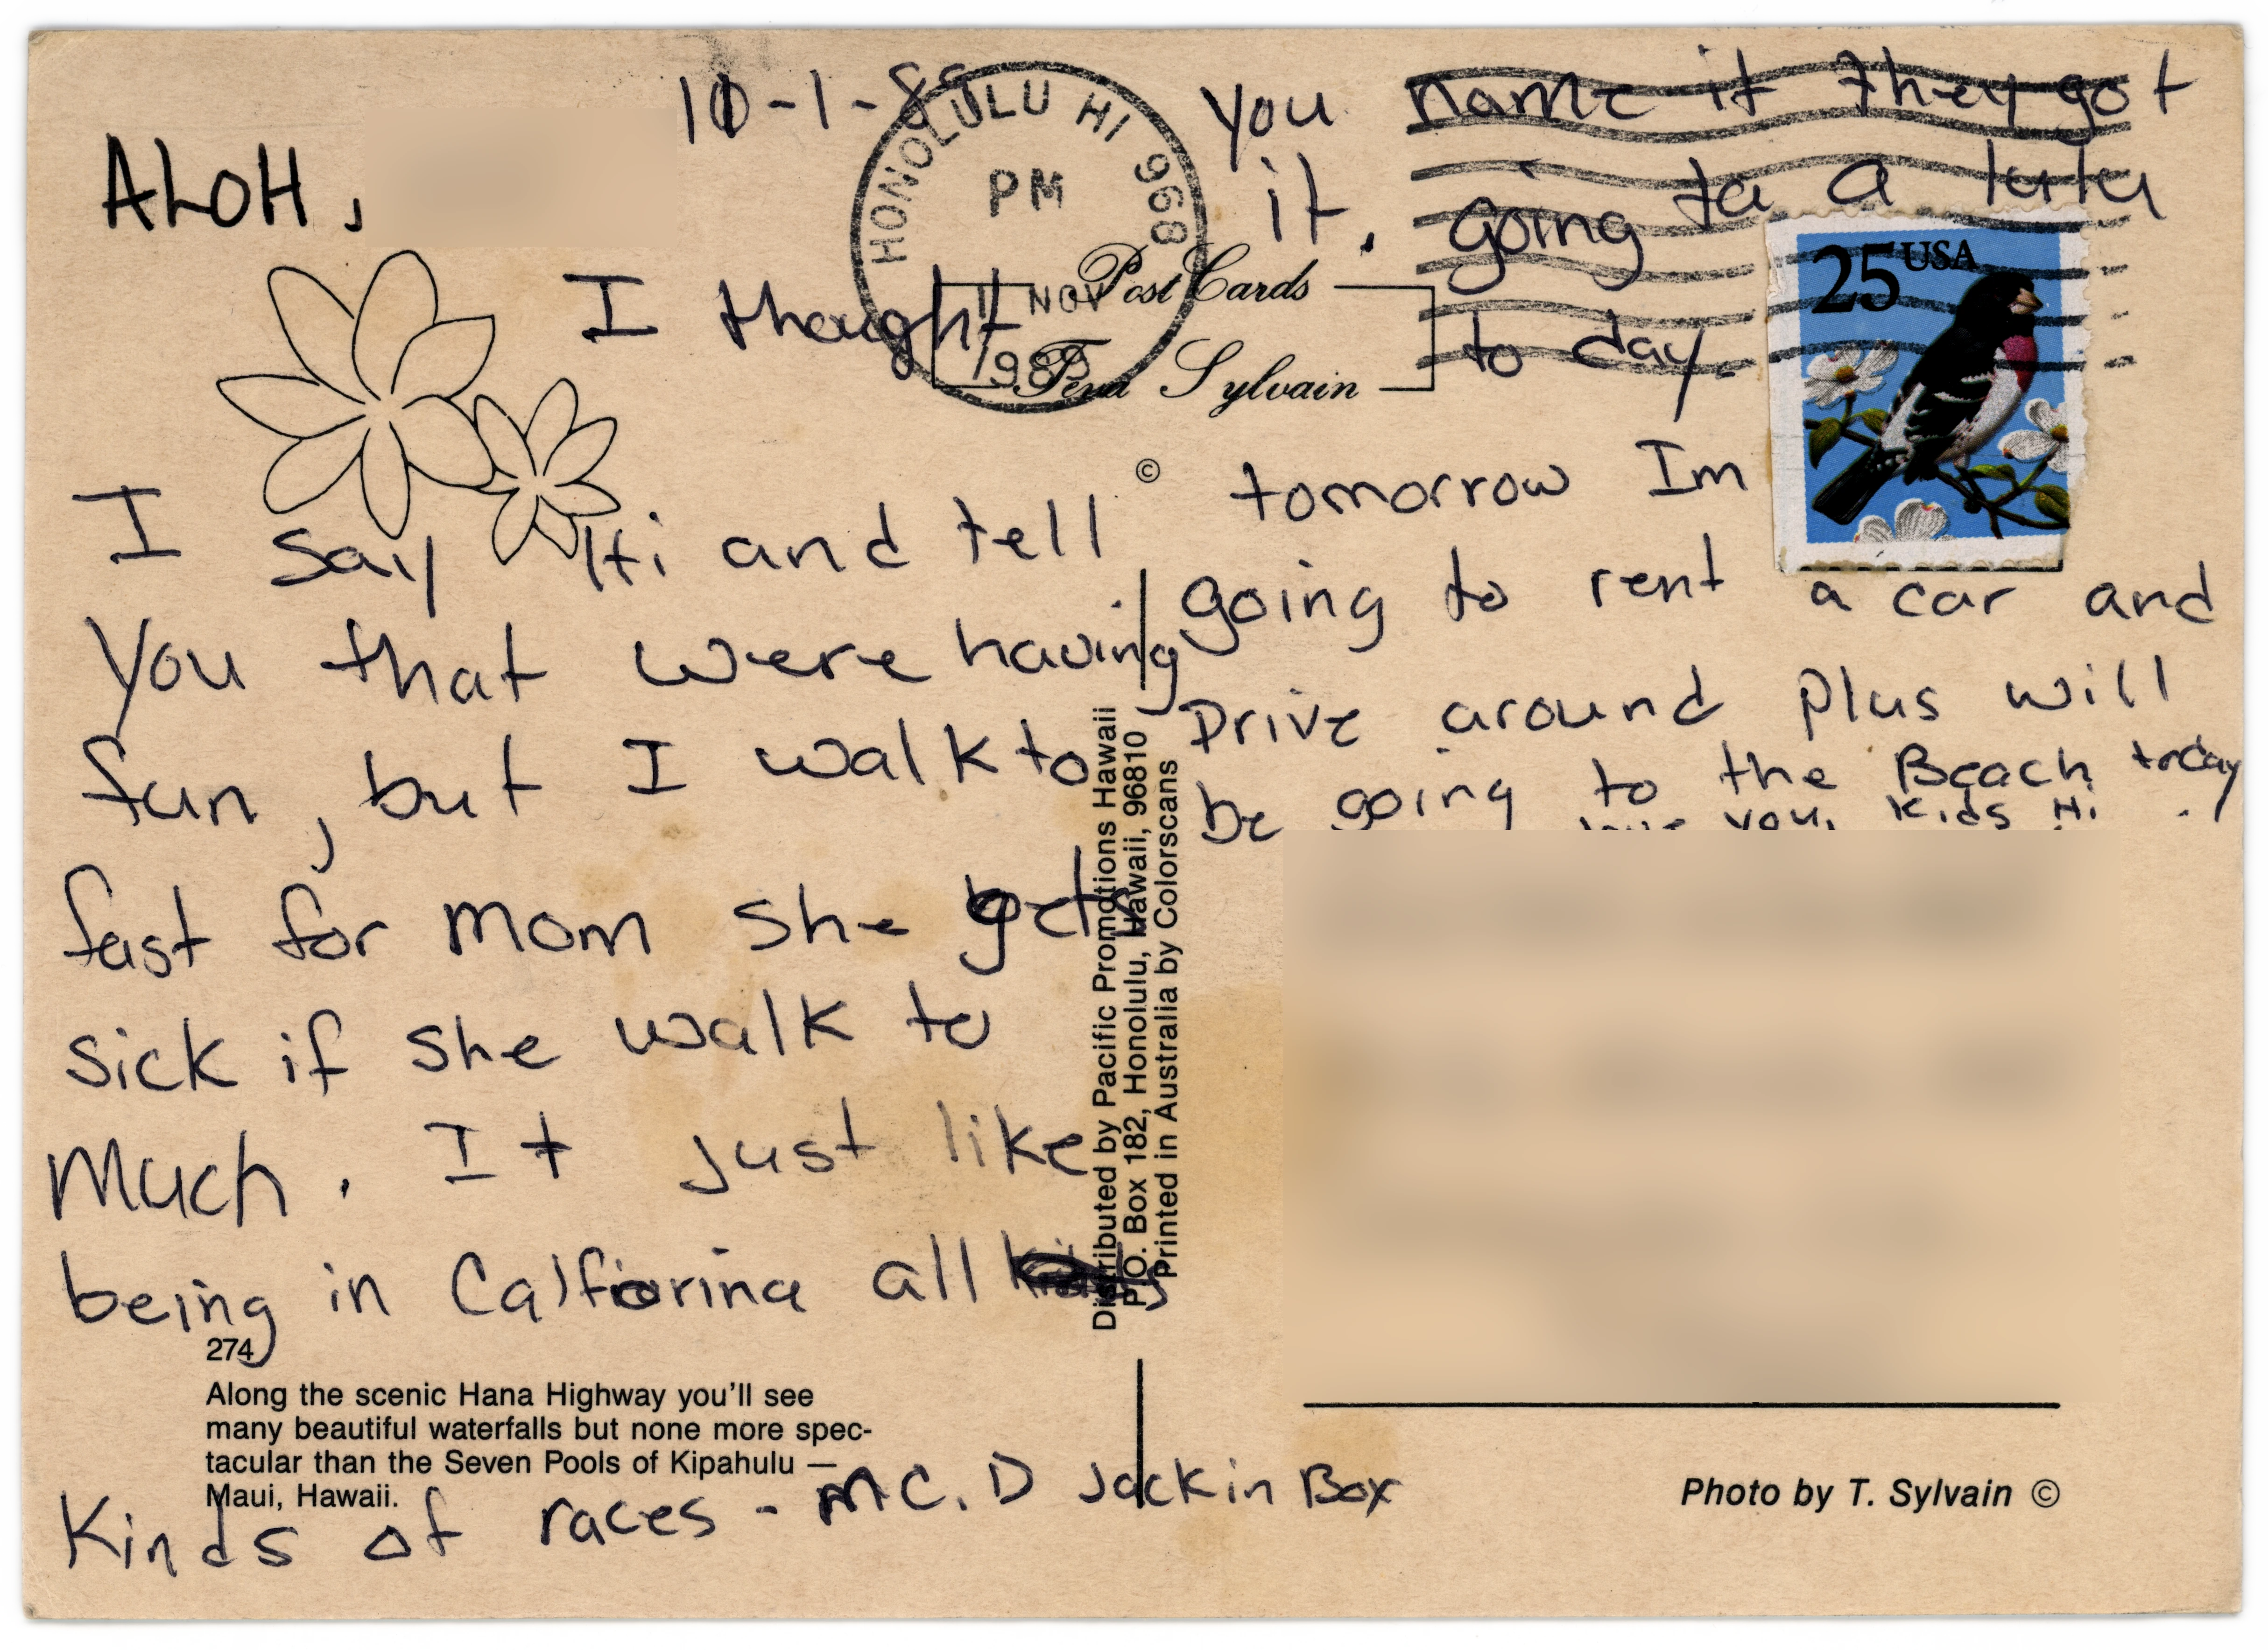 10-1-89
ALOH,
I thought
I say Hi and tell
you that were having
fun, but I walk to
fast for mom she gets
sick if she walk to
much. It just like
being in Calfiorina all
Kinds of races - MC. D Jack in Box
you name it they got
it. going to a lulu
to day.
tomorrow Im
going to rent a car and
Drive around plus will
be going to the Beach today
you, Kids Hi
HONOLULU HI 968
PM
1 NOV
1989
Post Cards
Sylvain
©
25 USA
Distributed by Pacific Promotions Hawaii
P.O. Box 182, Honolulu, Hawaii, 96810
Printed in Australia by Colorscans
274
Along the scenic Hana Highway you'll see
many beautiful waterfalls but none more spec-
tacular than the Seven Pools of Kipahulu —
Maui, Hawaii.
Photo by T. Sylvain ©